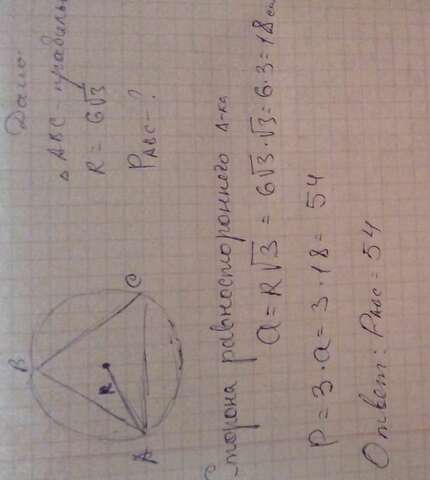 Дано:
△ ABC - правильн
R = 6√3
P ABC - ?
B
C
R
A
сторона равностороннего △-ка
a = R√3 = 6√3·√3 = 6·3 = 18 см
P = 3·a = 3·18 = 54
Ответ: P ABC = 54